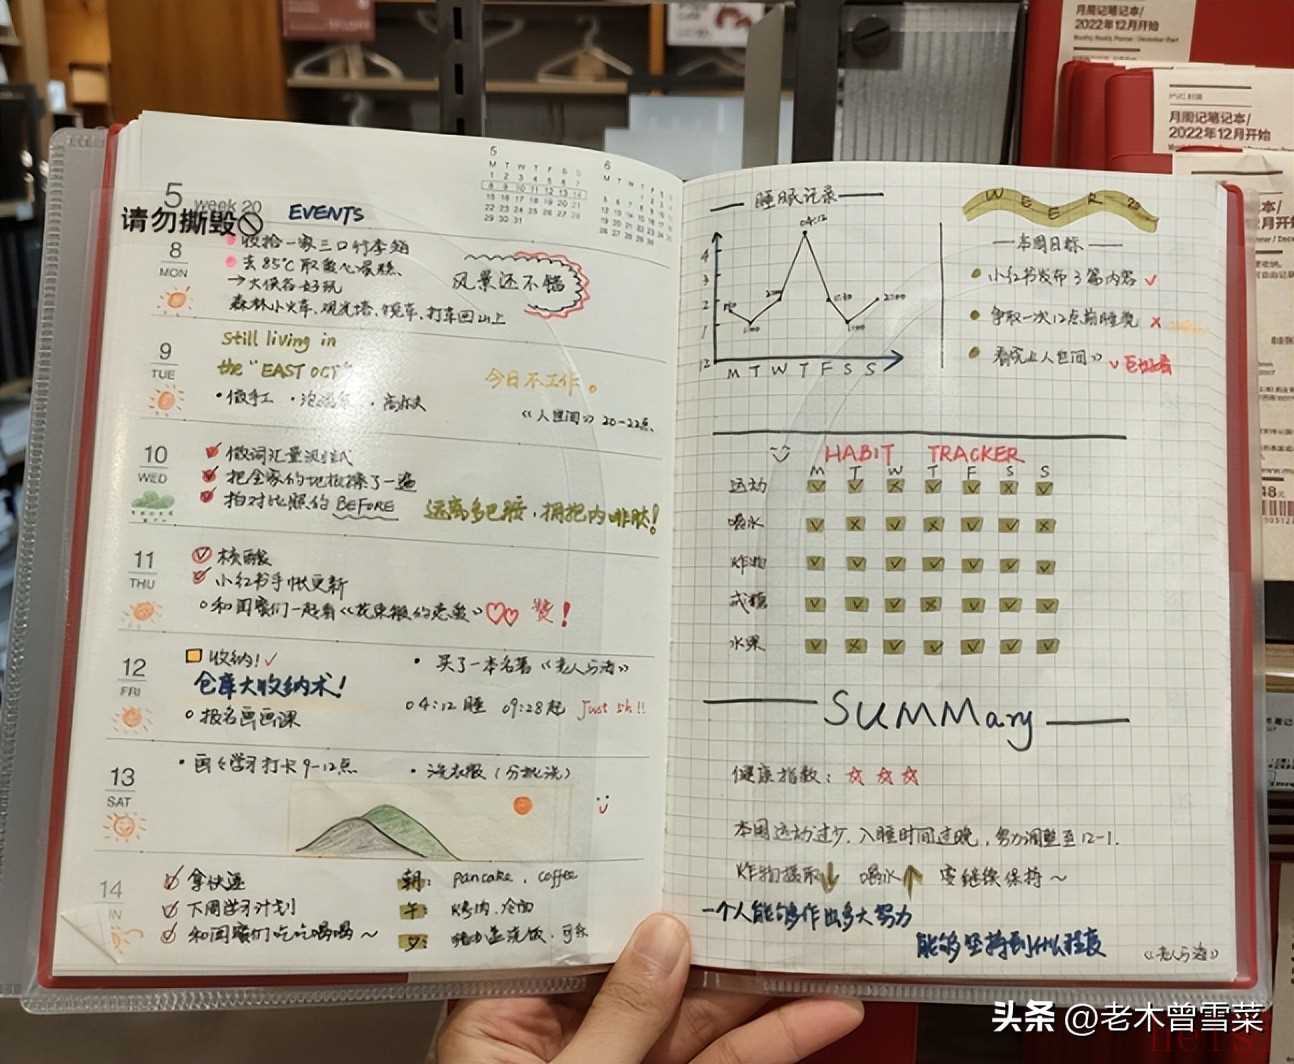 月周记笔记本/
2022年12月开始
月周记笔记本/
2022年12月开始
5 week 20
请勿撕毁
EVENTS
5
M T W T F S S
1 2 3 4 5 6 7
8 9 10 11 12 13 14
15 16 17 18 19 20 21
22 23 24 25 26 27 28
29 30 31
6
8
MON
收拾一家三口行李箱
去85℃取蛋糕
→大侠谷好玩
森林小火车、观光塔、缆车、打车回山上
风景还不错
9
TUE
Still living in
the "EAST OCT"
·做手工
今日不工作。
《人世间》20-22点
10
WED
做词汇量测试
把全家的地板擦了一遍
拍对比照的BEFORE
远离多巴胺,拥抱内啡肽!
11
THU
核酸
小红书手帐更新
和闺蜜们一起看《花束般的恋爱》赞!
12
FRI
收纳!✓
仓库大收纳术!
报名画画课
· 买了一本名著《老人与海》
04:12睡 09:28起 Just 5h!!
13
SAT
· 画画学习打卡9-12点
· 洗衣服(分批洗)
14
拿快递
下周学习计划
和闺蜜们吃吃喝喝~
朝: pancake、coffee
午: 烤肉、冷面
睡眠记录
04:12
4
3
2
1
12
M T W T F S S
WEEK 20
本周目标
小红书发布3篇内容 ✓
争取一次12点前睡觉 ×
看完《人世间》✓ 巨好看
HABIT TRACKER
M T W T F S S
运动 ✓ ✓ × ✓ ✓ × ✓
喝水 ✓ × ✓ × ✓ ✓ ×
炸物 ✓ ✓ ✓ ✓ ✓ ✓ ✓
戒糖 ✓ ✓ ✓ × ✓ ✓ ✓
水果 ✓ × ✓ ✓ ✓ ✓ ✓
SUMMary
健康指数: ☆☆☆
本周运动过少,入睡时间过晚,努力调整至12-1.
炸物摄取↓ 喝水↑ 要继续保持~
一个人能够作出多大努力
能够坚持到什么程度
《老人与海》
头条 @老木曾雪菜